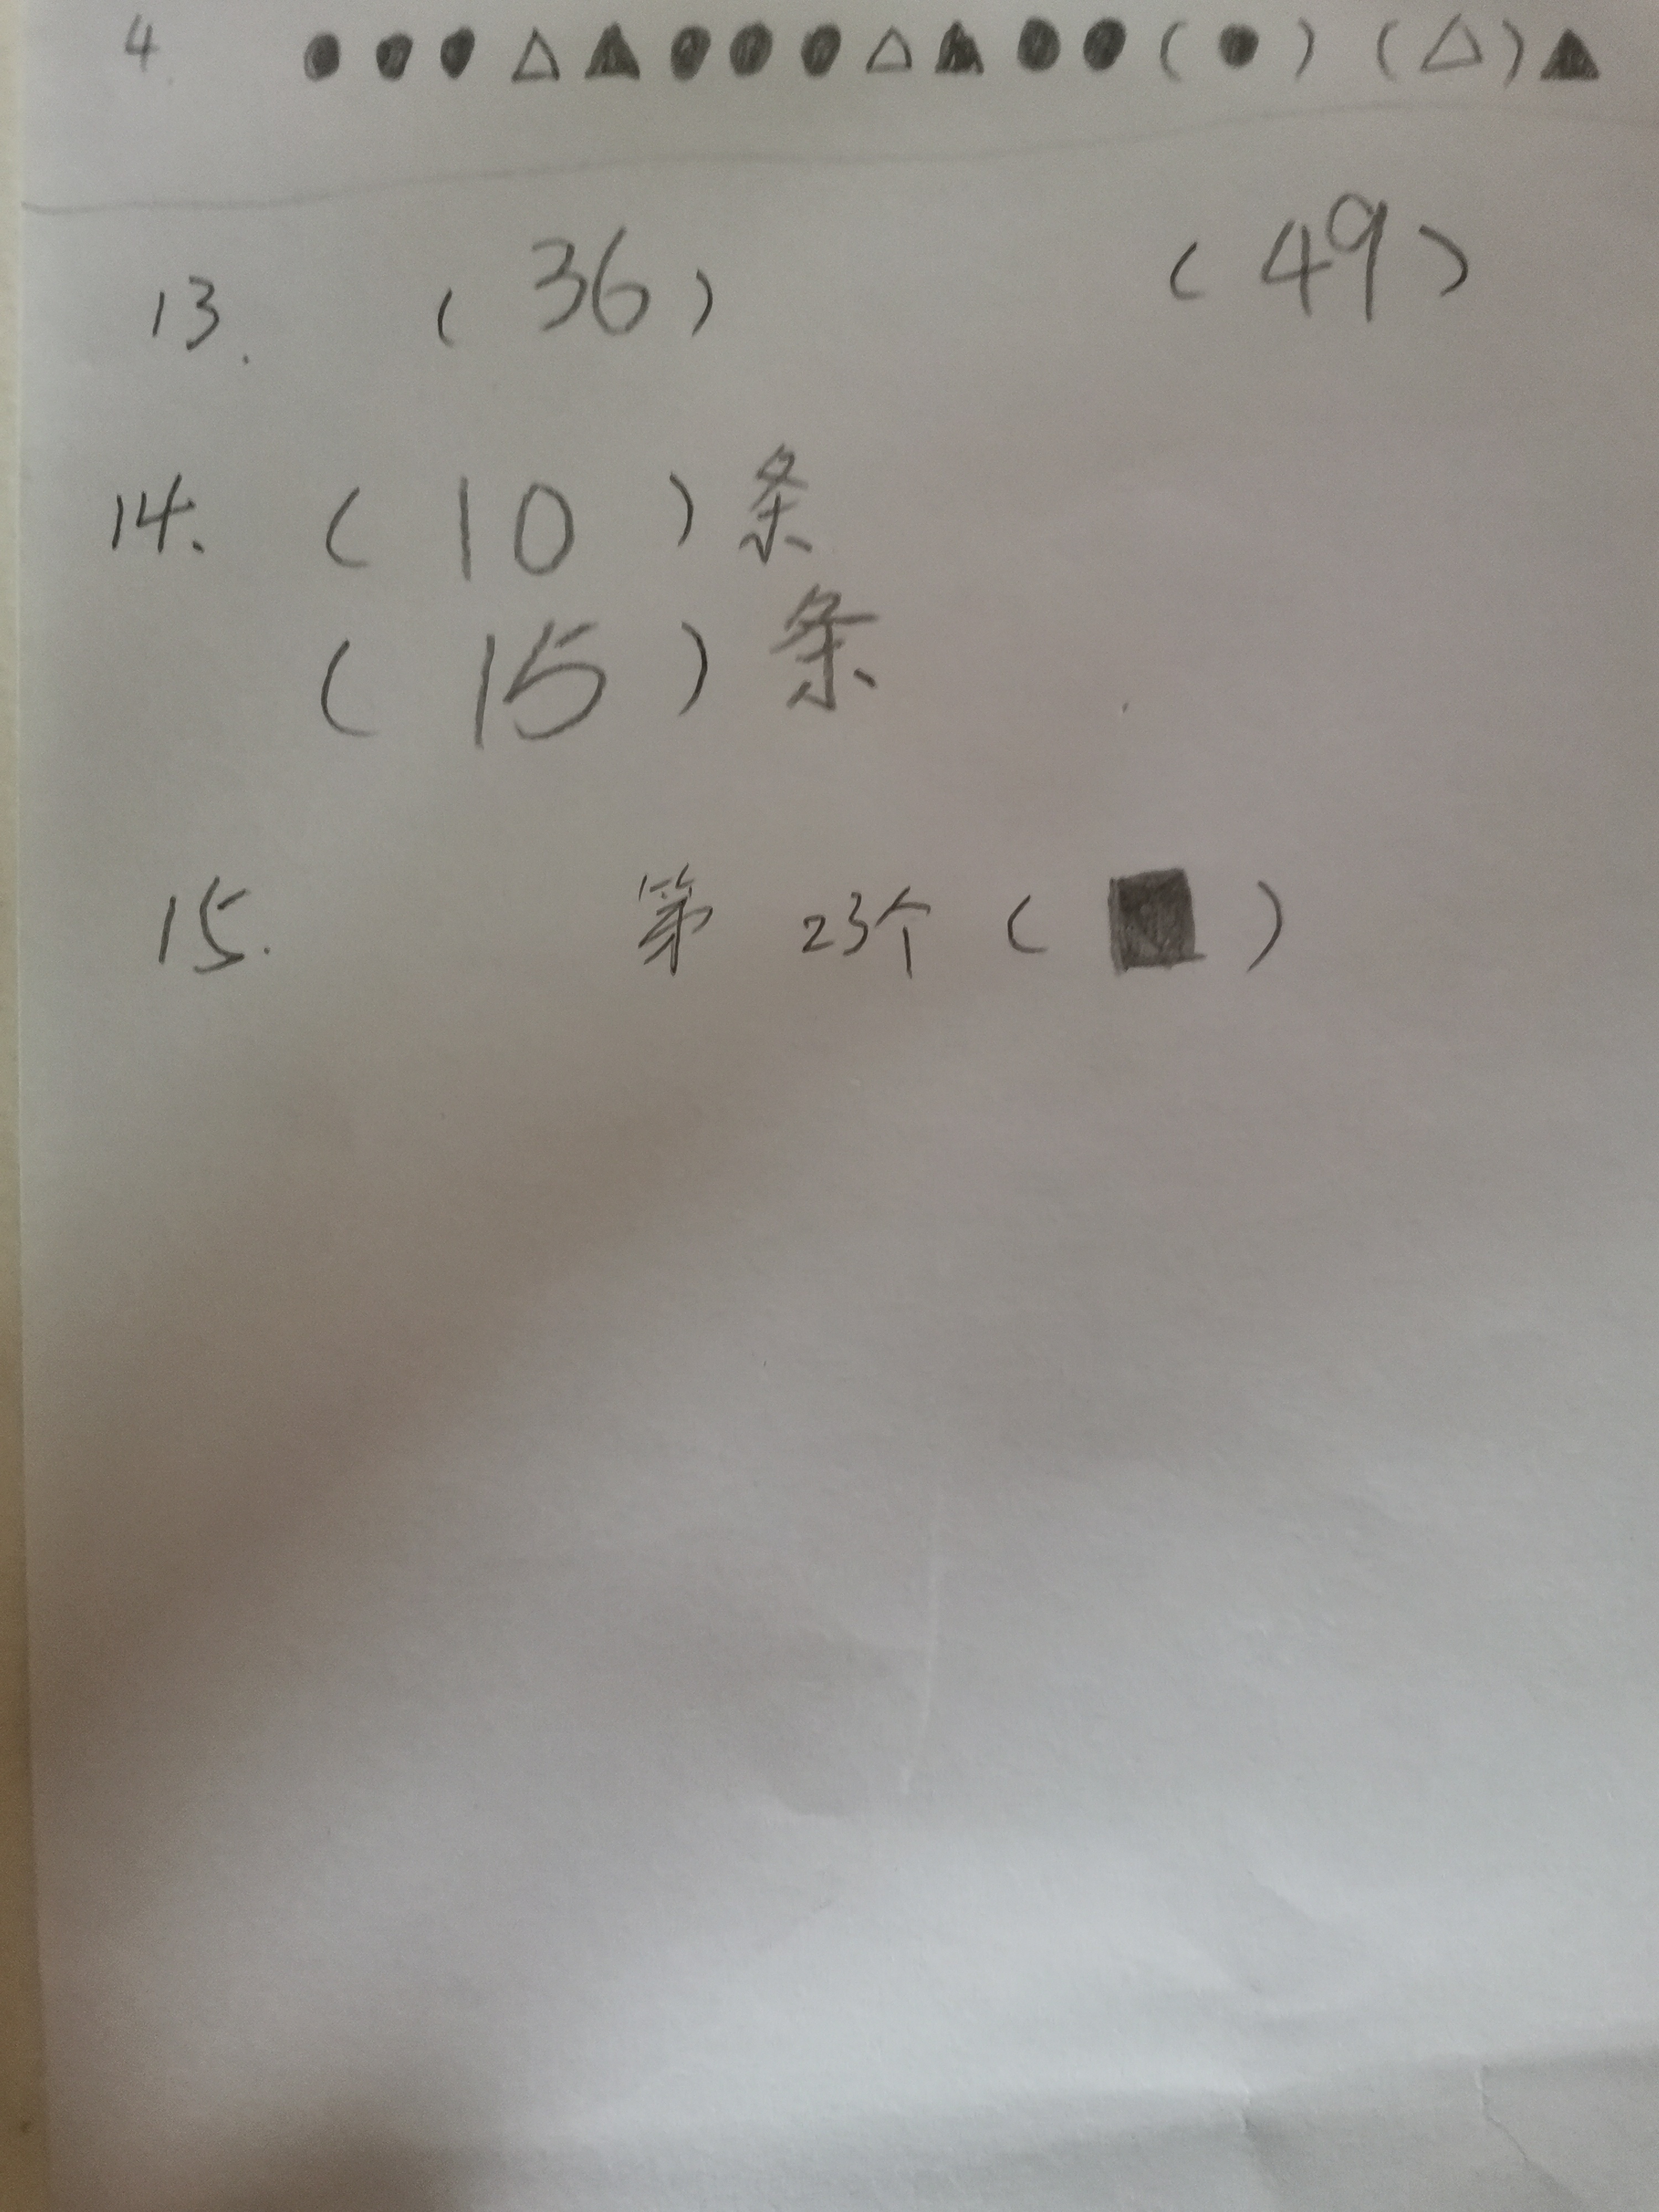 4. ●●●△▲●●●△▲●●(●)(△)▲
13. (36) (49)
14. (10)条
(15)条
15. 第23个(■)